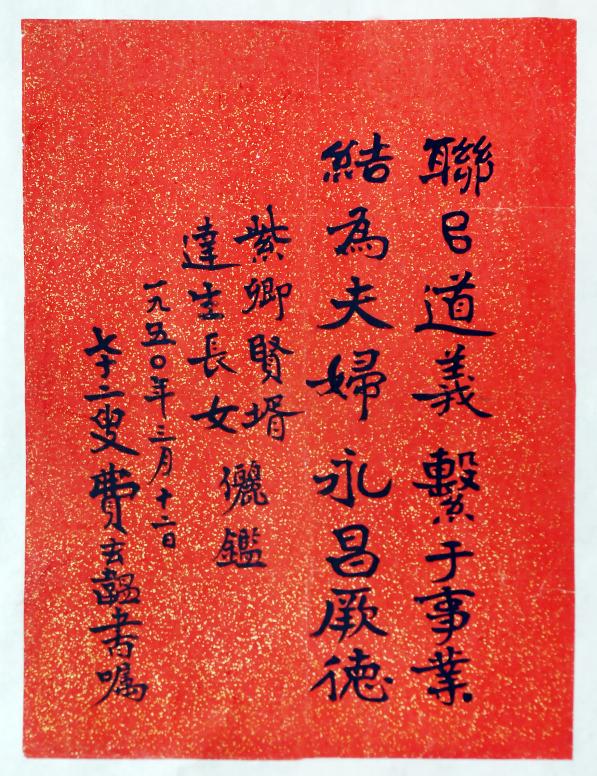 聯㠯道義 繫于事業
結為夫婦 永昌厥德
紫卿賢壻
達生長女
儷鑑
一九五〇年三月十二日
七十二叟費玄韞書囑